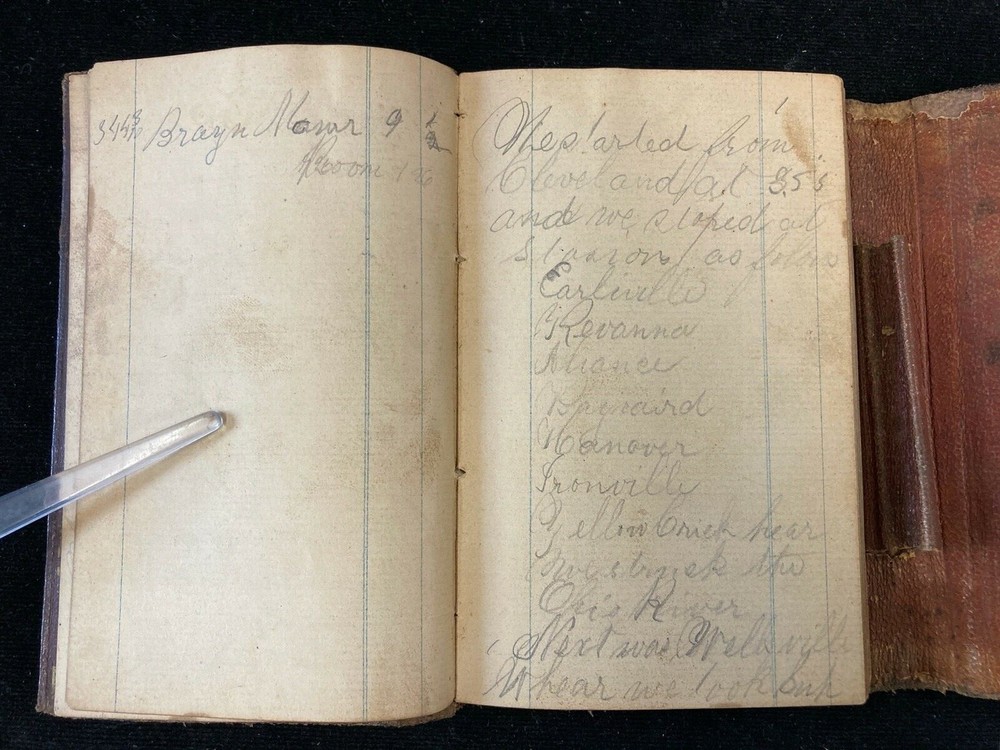 Brayn Mawr 9
Room 126
1
We started from
Cleveland at 8.55
and we stoped at
Stasion as folow
Earlville
Revanna
Aliance
Baynaird
Hanover
Ironville
Yellow Creek hear
we struck the
Ohio River
Next was Wellsville
Whear we took